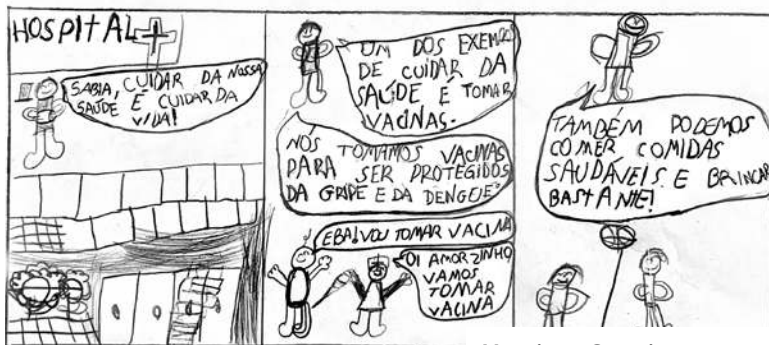 HOSPITAL
SABIA, CUIDAR DA NOSSA
SAÚDE É CUIDAR DA
VIDA!
UM DOS EXEMPLOS
DE CUIDAR DA
SAÚDE É TOMAR
VACINAS.
NÓS TOMAMOS VACINAS
PARA SER PROTEGIDOS
DA GRIPE E DA DENGUE
EBA! VOU TOMAR VACINA
OI AMORZINHO
VAMOS
TOMAR
VACINA
TAMBÉM PODEMOS
COMER COMIDAS
SAUDÁVEIS E BRINCAR
BASTANTE!